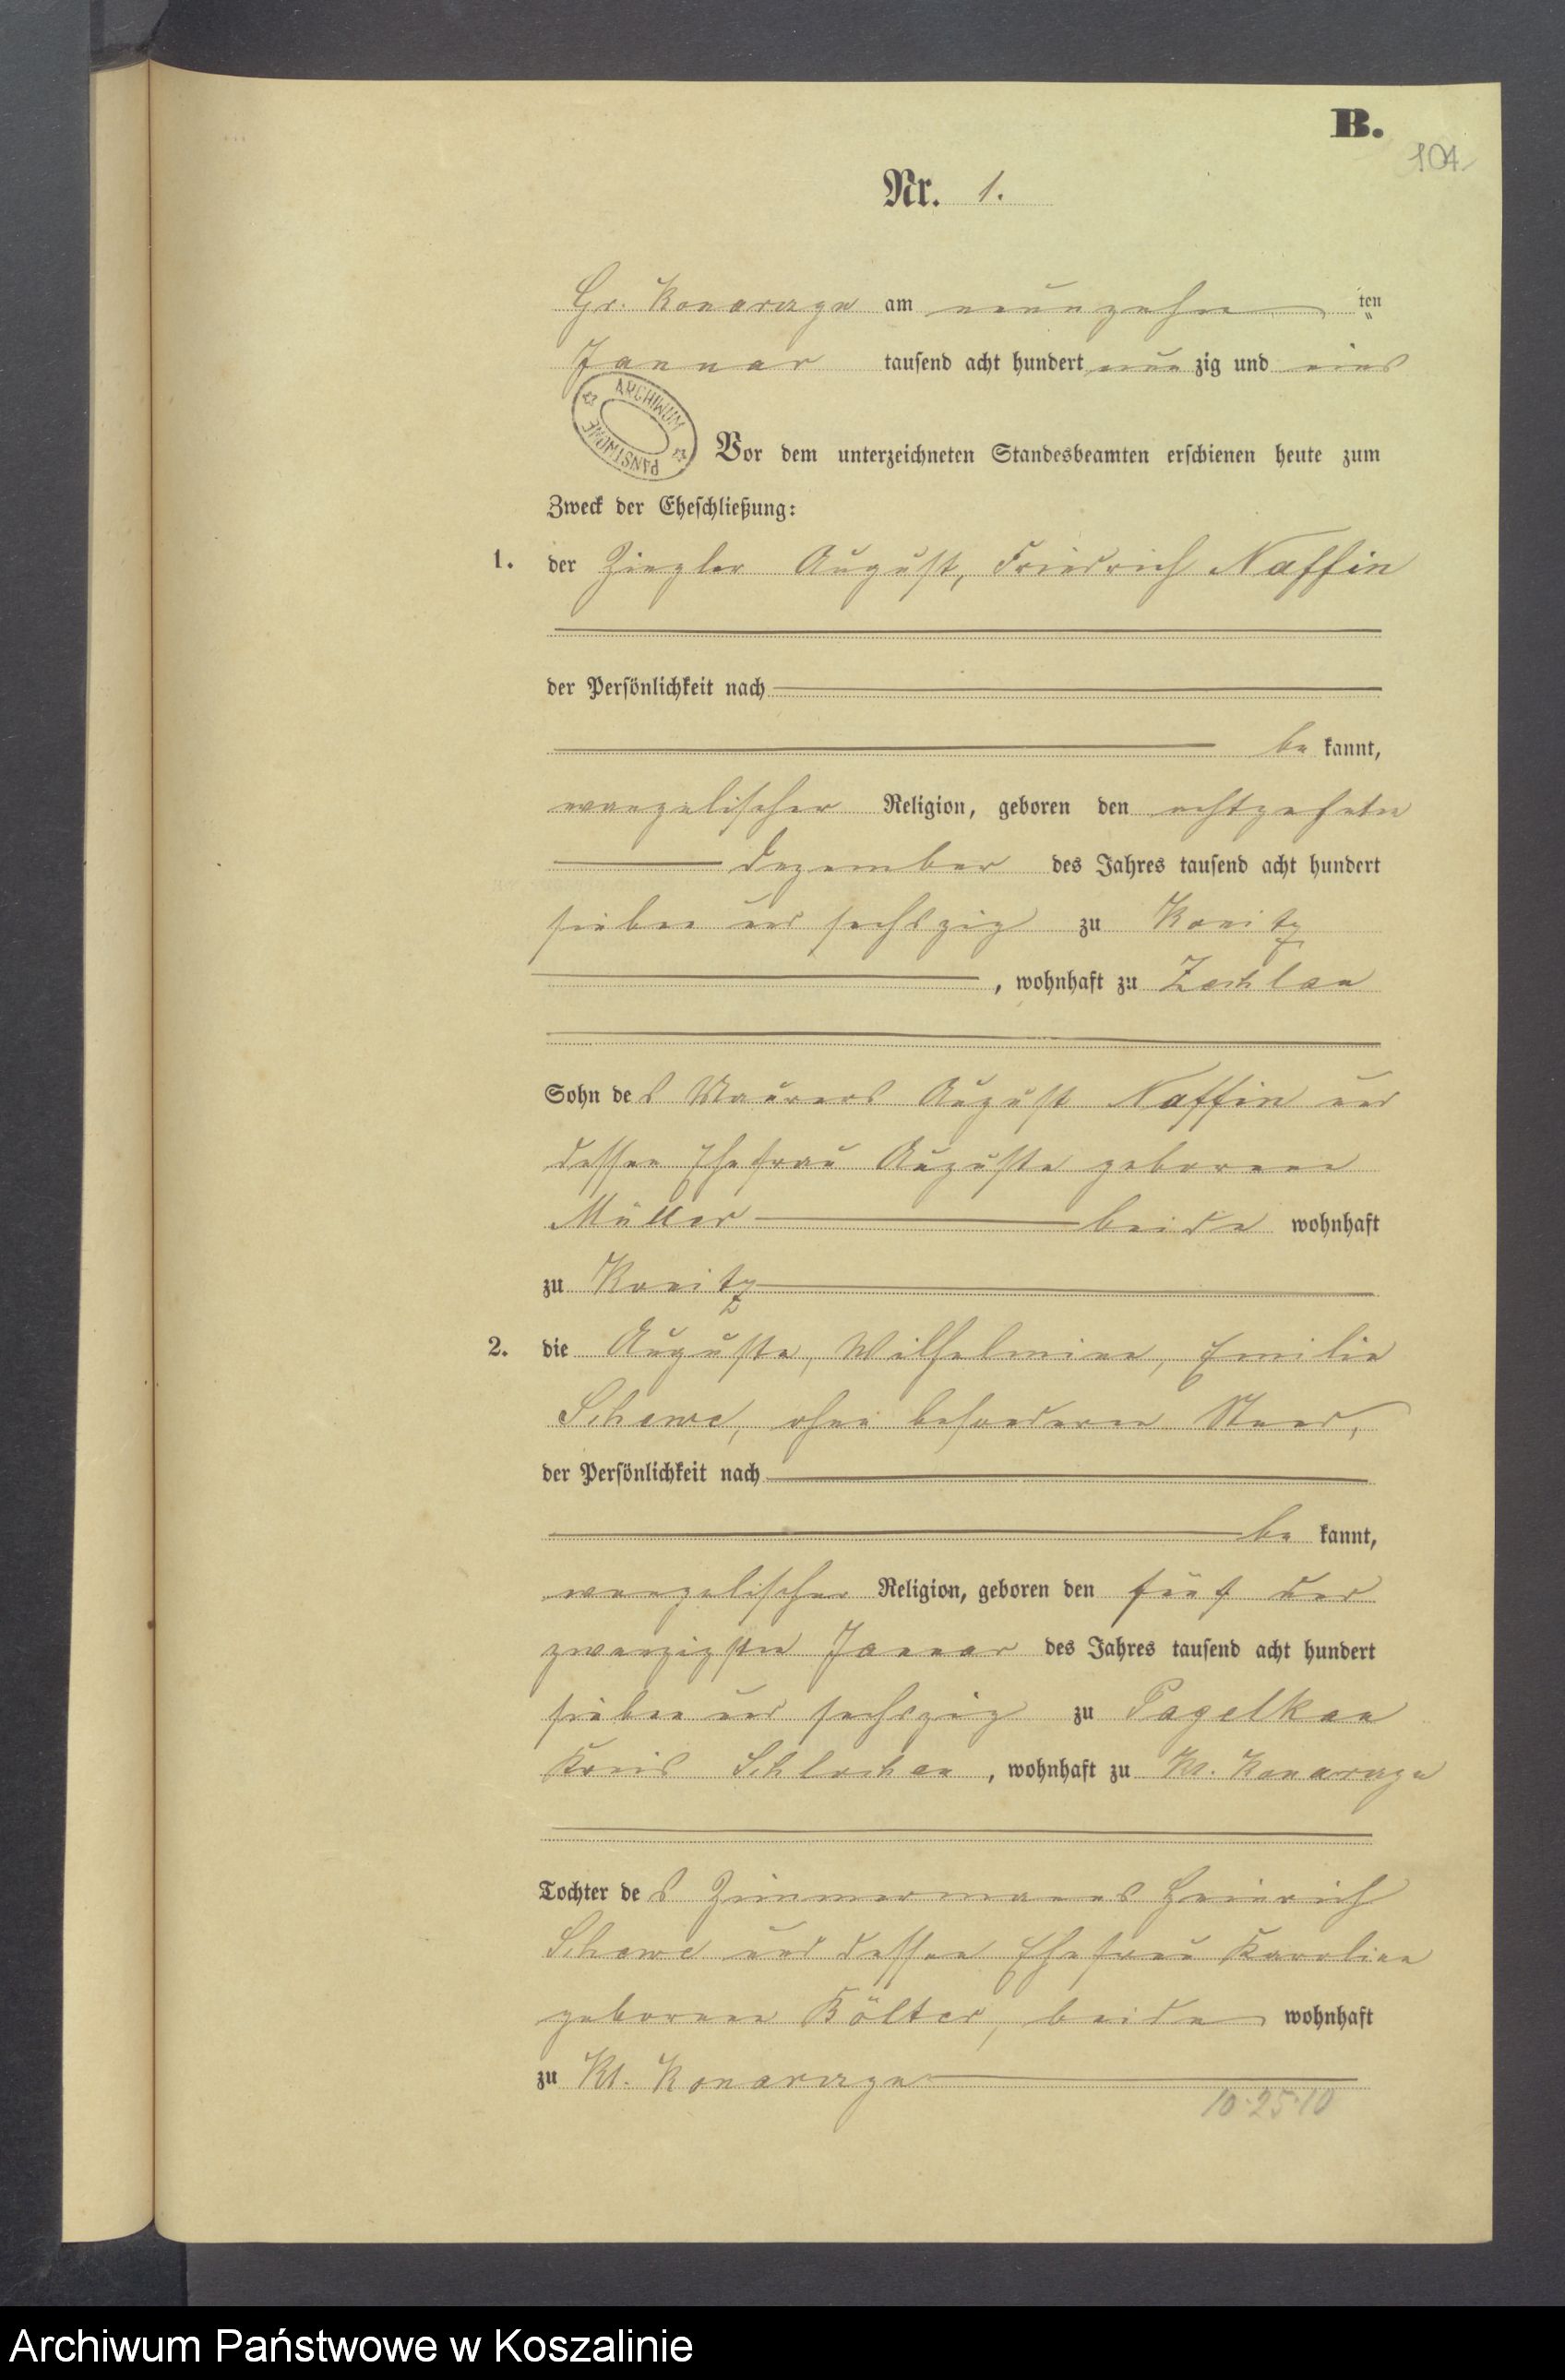 B.
104
Nr. 1.
Gr. Konarczyn am neunzehn ten
Januar tausend acht hundert neun zig und eins
ARCHIWUM PAŃSTWOWE
Vor dem unterzeichneten Standesbeamten erschienen heute zum
Zweck der Eheschließung:
1. der Ziegler August, Friedrich Naffin
der Persönlichkeit nach
be kannt,
evangelischer Religion, geboren den achtzehnten
Dezember des Jahres tausend acht hundert
sieben und sechszig zu Konitz
, wohnhaft zu Zechlau
Sohn des Maurers August Naffin und
dessen Ehefrau Auguste geborenen
Müller beide wohnhaft
zu Konitz
2. die Auguste, Wilhelmine, Emilie
Schewe, ohne besonderen Stand,
der Persönlichkeit nach
be kannt,
evangelischer Religion, geboren den fünf und
zwanzigsten Januar des Jahres tausend acht hundert
sieben und sechszig zu Pagelkau
Kreis Schlochau, wohnhaft zu Kl. Konarczyn
Tochter des Zimmermanns Heinrich
Schewe und dessen Ehefrau Karoline
geborenen Bölter, beide wohnhaft
zu Kl. Konarczyn
10·25·10
Archiwum Państwowe w Koszalinie